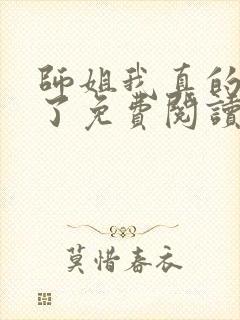 師姐我真的
了免費閱讀
莫惜春衣